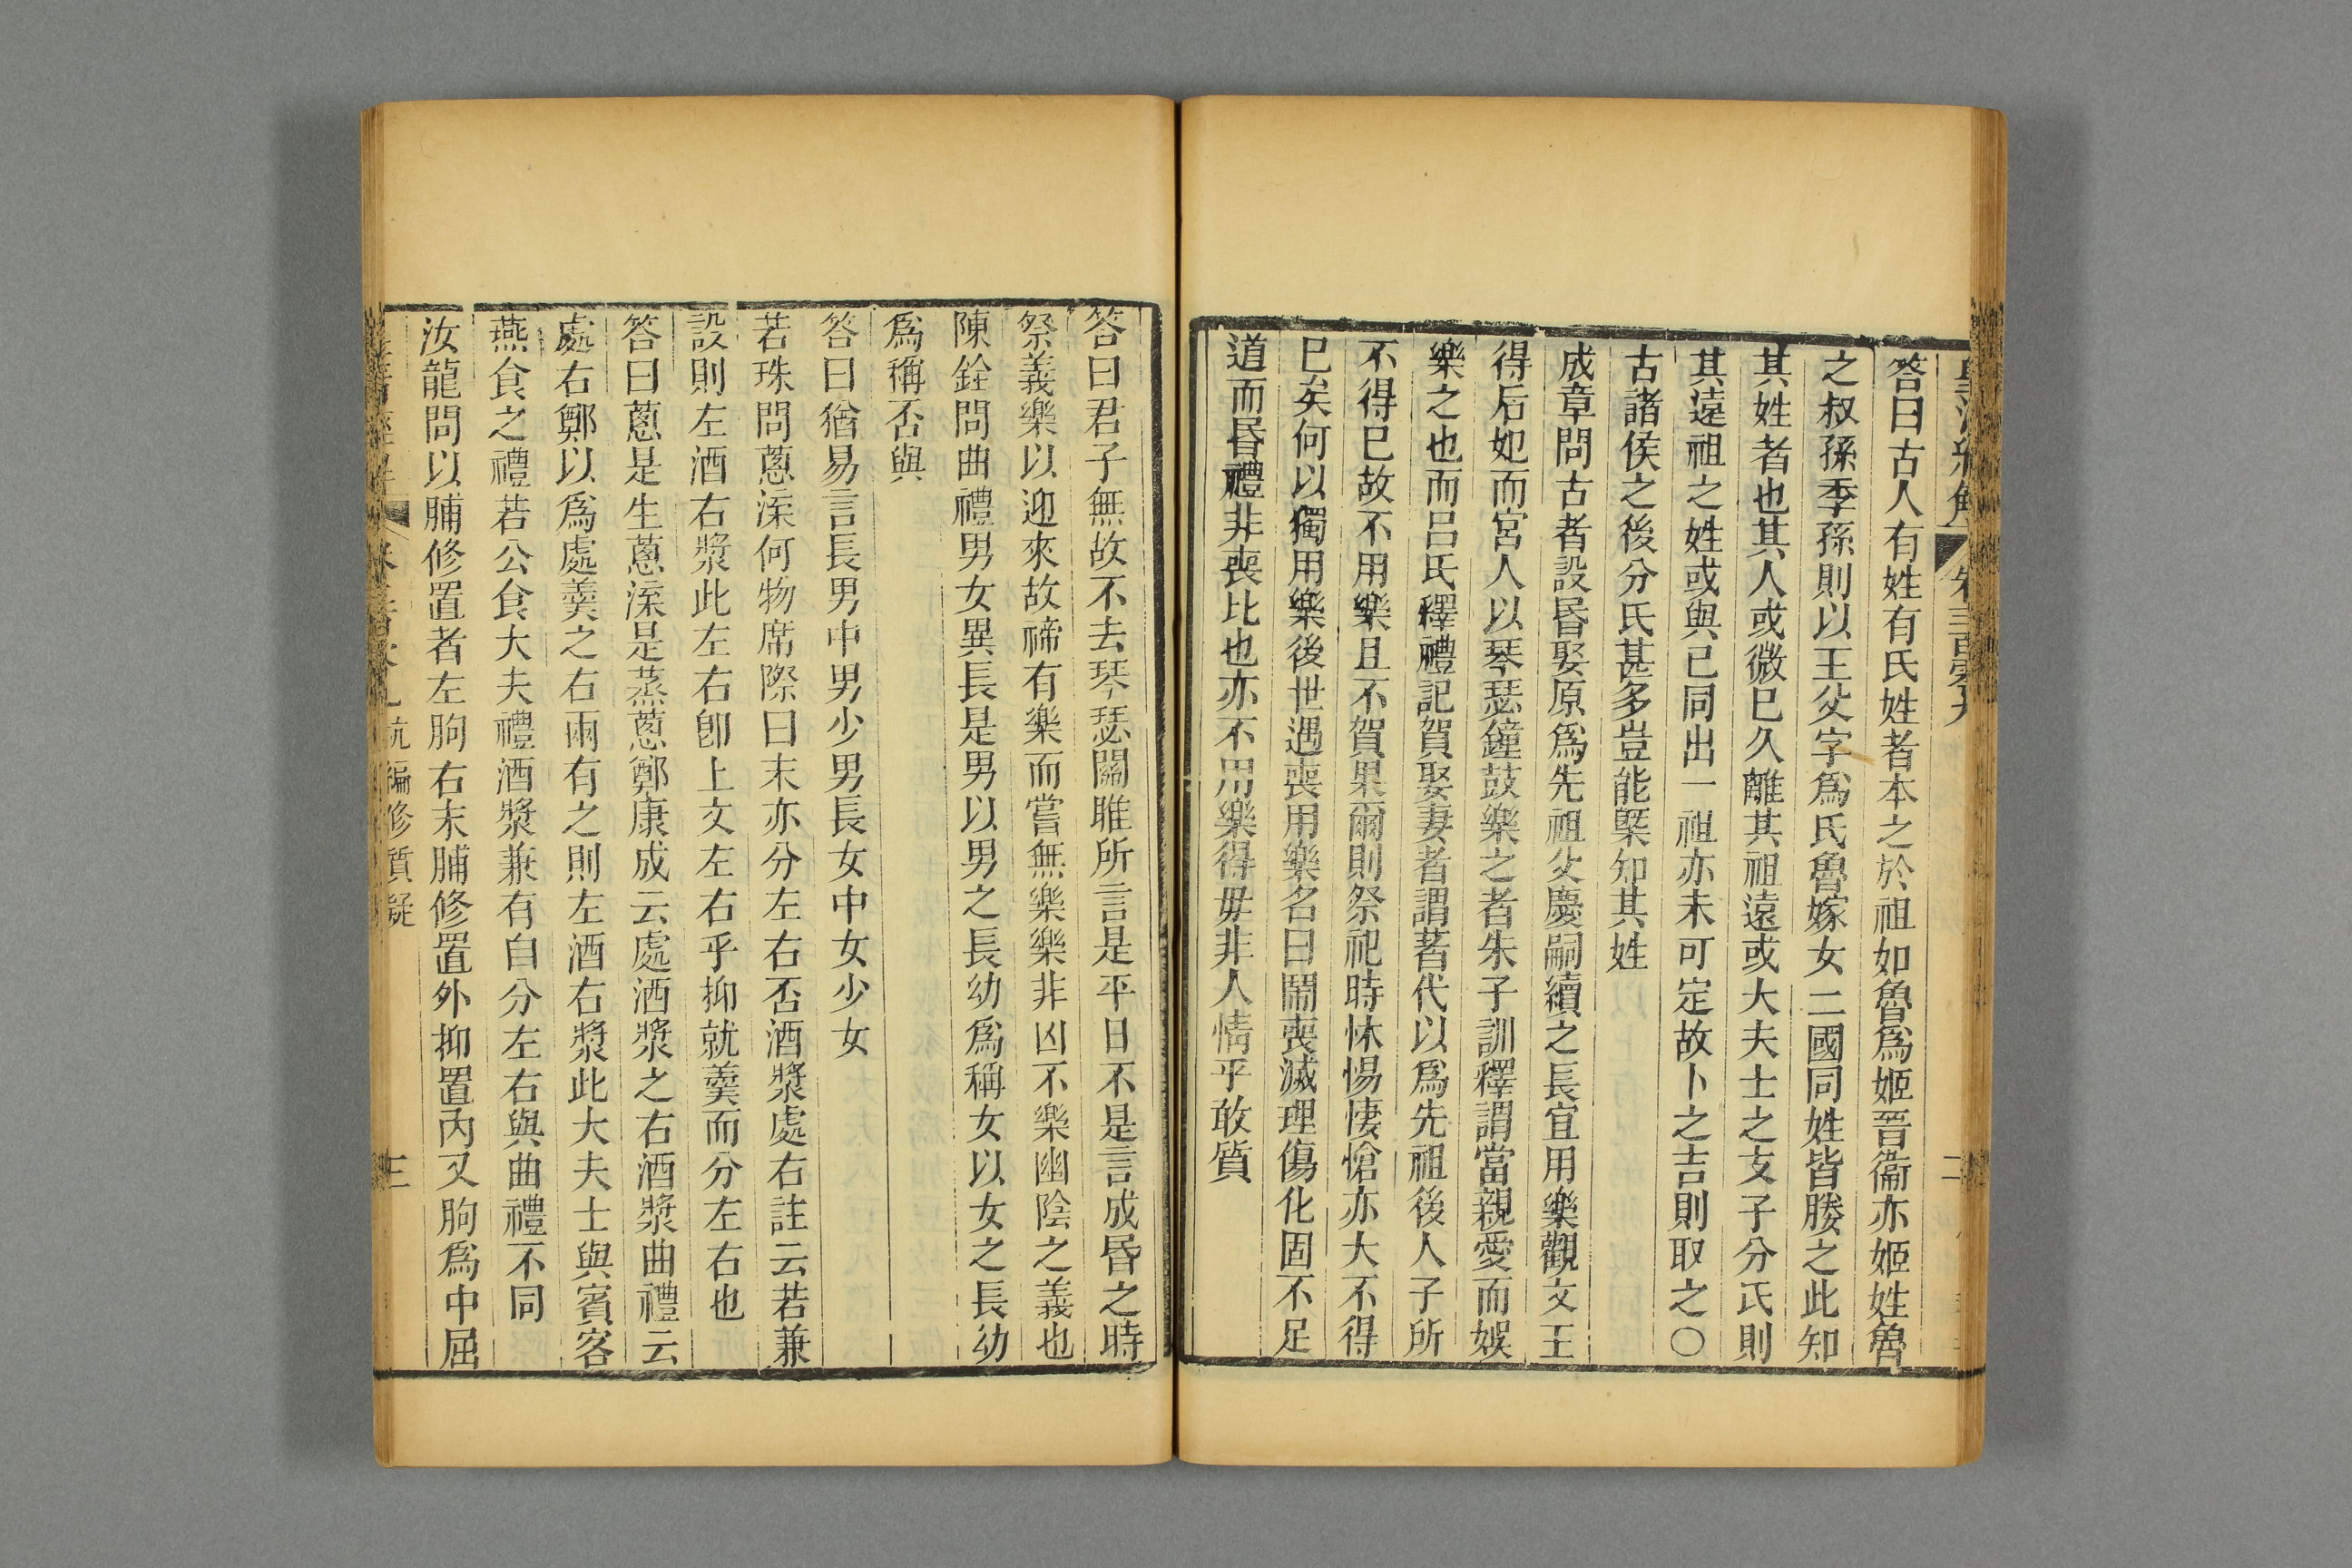 皇淸經解 卷三百零九 二
答曰古人有姓有氏姓者本之於祖如魯爲姬晉衞亦姬姓魯
之叔孫季孫則以王父字爲氏魯嫁女二國同姓皆媵之此知
其姓者也其人或微巳久離其祖遠或大夫士之支子分氏則
其遠祖之姓或與巳同出一祖亦未可定故卜之吉則取之〇
古諸侯之後分氏甚多豈能槩知其姓
成章問古者設昬娶原爲先祖父慶嗣續之長宜用樂觀文王
得后妃而宮人以琴瑟鐘鼓樂之者朱子訓釋謂當親愛而娛
樂之也而呂氏釋禮記賀娶妻者謂著代以爲先祖後人子所
不得巳故不用樂且不賀果爾則祭祀時怵惕悽愴亦大不得
巳矣何以獨用樂後世遇喪用樂名曰鬧喪滅理傷化固不足
道而昬禮非喪比也亦不用樂得毋非人情乎敢質
答曰君子無故不去琴瑟關雎所言是平日不是言成昬之時
祭義樂以迎來故禘有樂而嘗無樂樂非凶不樂幽陰之義也
陳銓問曲禮男女異長是男以男之長幼爲稱女以女之長幼
爲稱否與
答曰猶易言長男中男少男長女中女少女
若珠問蔥渫何物席際曰末亦分左右否酒漿處右註云若兼
設則左酒右漿此左右卽上文左右乎抑就羹而分左右也
答曰蔥是生蔥渫是蒸蔥鄭康成云處酒漿之右酒漿曲禮云
處右鄭以爲處羹之右兩有之則左酒右漿此大夫士與賓客
燕食之禮若公食大夫禮酒漿兼有自分左右與曲禮不同
汝龍問以脯修置者左朐右末脯修置外抑置內又朐爲中屈
皇淸經解 卷三百零九 杭編修質疑 三